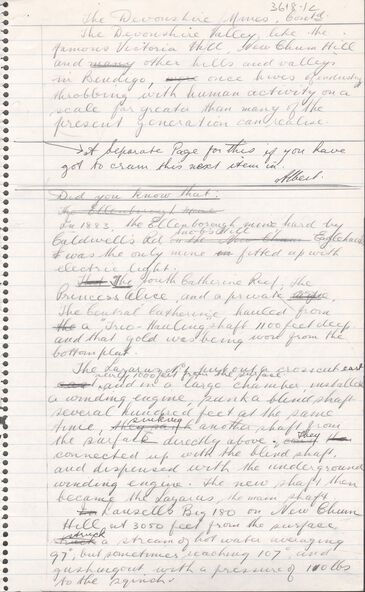 3618-12
The Devonshire Mines, Contd
The Devonshire Valley, like the
famous Victoria Hill, New Chum Hill
and many other hills and valleys
in Bendigo, once hives of industry
throbbing with human activity on a
scale far greater than many of the
present generation can realise.
A Separate Page for this if you have
got to cram this next item in.
Albert.
Did you know that:
The Ellenborough mine
In 1883, the Ellenborough mine hard by
Caldwell's Rd in the New Chum
was the only mine fitted up with
electric light.
That The South Catherine Reef, the
Princess Alice, and a private
The Central Catherine, hauled from
the a "Trio-Hauling shaft 1100 feet deep
and that gold was being won from the
bottom plat.
The Lazarus Co's
nearly 2000 feet from the surface
and in a large chamber, installed
a winding engine, sunk a blind shaft
several hundred feet at the same
time, sinking another shaft from
the surface directly above. They
connected up with the blind shaft,
and dispensed with the underground
winding engine. The new shaft then
became the Lazarus, the main shaft
In Lansell's Big 180 on New Chum
Hill, at 3050 feet from the surface
struck a stream of hot water averaging
97°, but sometimes reaching 107°, and
gushing out with a pressure of 100 lbs
to the sq inch